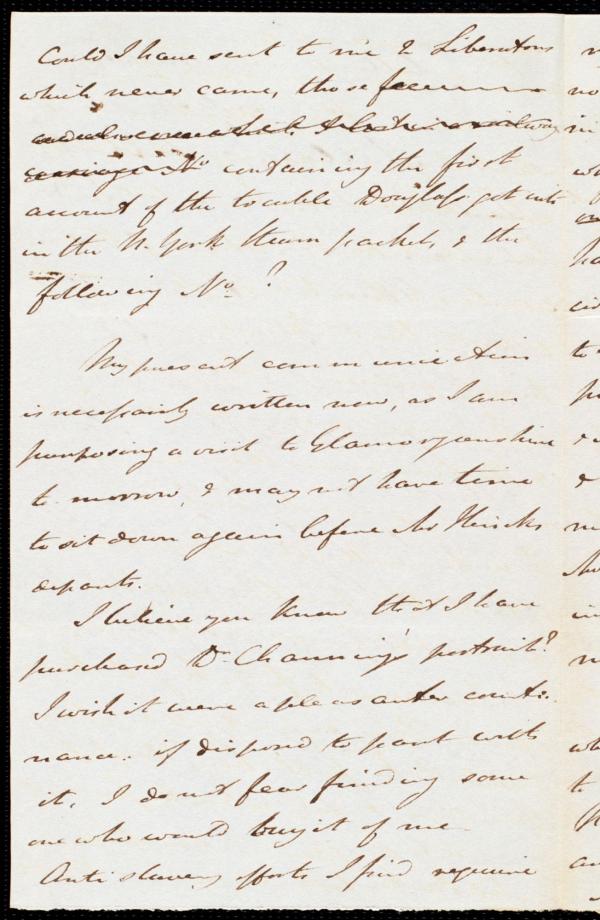 Could I have sent to me 2 Liberators
which never came, those
No containing the first
account of the trouble Douglass got into
in the N. York steam packet, & the
following No ?
My present communication
is necessarily written now, as I am
purposing a visit to Glamorganshire
to morrow, & may not have time
to sit down again before Mr Hincks
departs.
I believe you know that I have
purchased Dr Channing's portrait?
I wish it were a pleasanter counte-
nance. if disposed to part with
it, I do not fear finding some
one who would buy it of me.
Anti slavery efforts I find require